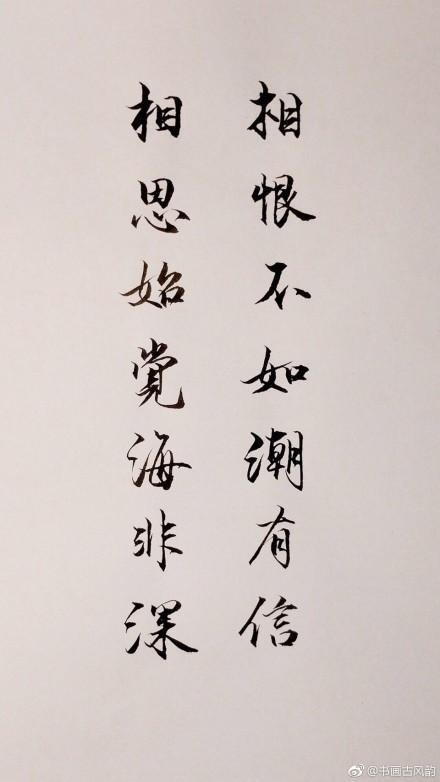 相恨不如潮有信
相思始觉海非深
@书画古风韵